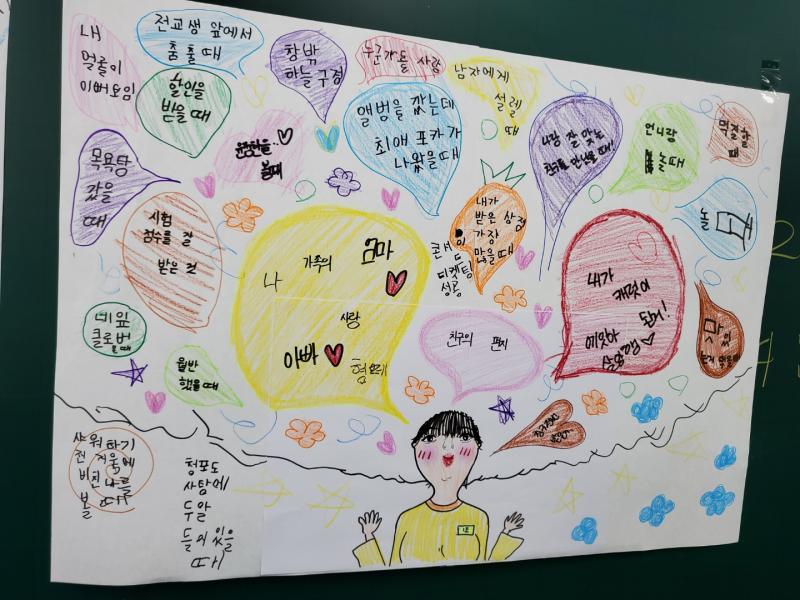 내
얼굴이
이뻐보임
전교생 앞에서
춤출때
창밖
하늘 구경
누군가를 사랑
남자에게
설렐
때
할인을
받을때
앨범을 깠는데
최애 포카가
나왔을때
나랑 잘 맞는
친구를 만났을때!
언니랑
놀때
먹잘할
때
목욕탕
갔을
때
볼때
시험
점수를 잘
받은 것
내가
받은 상점
이 가장
많을때
콘서트
티켓팅
성공
놀
나 가족의 엄마
사랑
아빠
형오빠
내가
캐럿이
된게!
친구의 편지
네잎
클로버
때
올반
했을때
샤워하기
전 거울에
비친 나를
볼 때
청포도
사탕에
두알
들어 있을
때